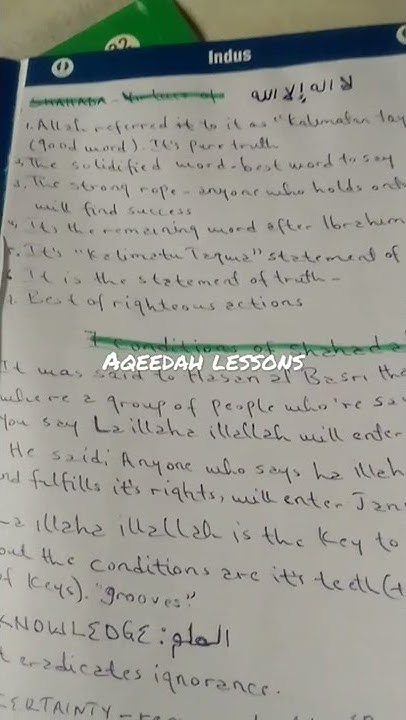 Indus
SHAHADA - Virtues of لا اله إلا الله
1. Allah referred it to it as "Kalimatan tay
(good word). It's pure truth
2. The solidified word - best word to say
3. The strong rope - anyone who holds onto
will find success
4. Its the remaining word after Ibrahim
5. It's "Kalimatu Taqwa" statement of
6 It is the statement of truth -
7. Best of righteous actions
7 Conditions of Shahada
AQEEDAH LESSONS
It was said to Hasan al Basri the
where a group of people who're say
you say La illaha illallah will enter
He said; Anyone who says la illah
nd fulfills it's rights, will enter Jan
La illaha illallah is the key to
out the conditions are it's teeth (t
of keys). "grooves"
KNOWLEDGE: العلم
t eradicates ignorance.
CERTAINTY -